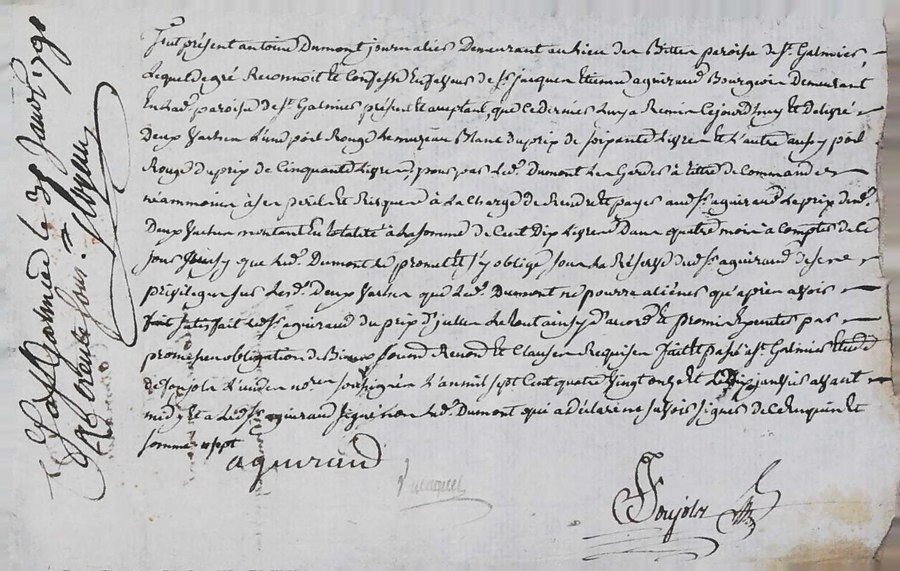 Fut présent antoine Dumont journalier Demeurant au lieu des Bitter paroisse de St. Galmier,
Lequel de gré Reconnoit et Confesse En faveur de Sr jacques Etienne aguiraud Bourgeois Demeurant
En lad. paroisse de St. Galmier présent et acceptant, que ce dernier Luy a Remis Cejourd'huy et delivré
Deux Vaches L'une poil Rouge Le museau Blanc du prix de soixante Livres et L'autre aussy poil
Rouge du prix de Cinquante Livres, pour par Led. Dumont Les Garder à titre de Commande
néammoins à ses peril et Risques à La Charge de Rendre et payer aud. Sr. aguiraud Le prix desd.
Deux Vaches montant En totalité à La somme de Cent Dix Livres Dans quatre mois à Compter de Ce
jour, que Led. Dumont Le promet et s'y oblige sous La Réserve dud. Sr. aguiraud de son
privilege sur Lesd. Deux Vaches que Led. Dumont ne pourra aliéner qu'après avoir
satisfait Led. Sr. aguiraud du prix d'jcelles Le tout ainsy d'acord et promis Executer par
promesses obligation de Biens Renond et Clauses Requises fait et passé a St. Galmier Etude
de Soujols L'un des nores soussignés L'an mil sept Cent quatre Vingt onze et Le janvier avant
midy et a Led. Sr. aguiraud signé non Led. Dumont qui a déclaré ne savoir signer de Ce Enquis et
sommé
aguiraud
Soujols
St Galmier Le janvr 1791